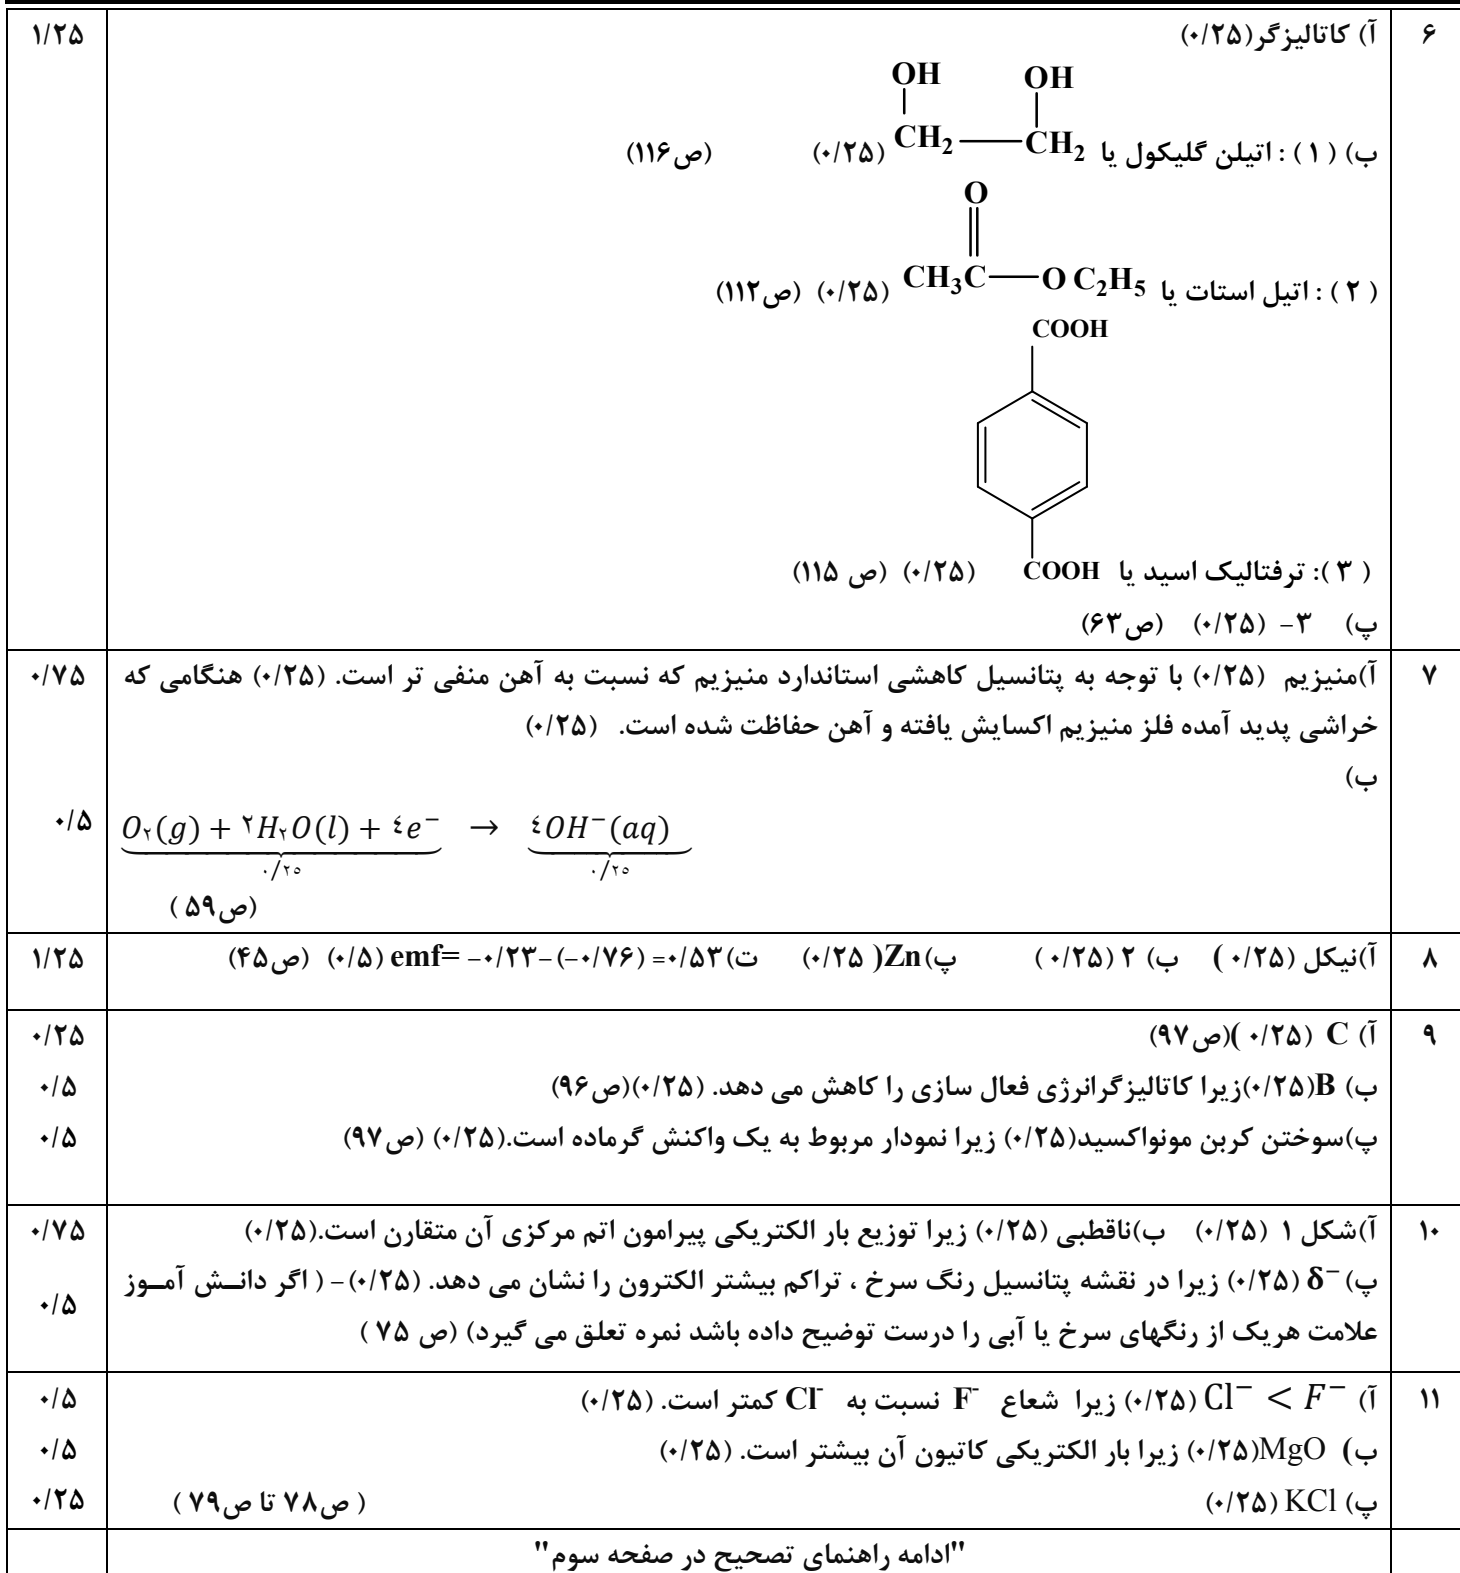 ۶ آ) کاتالیزگر(۰/۲۵) ۱/۲۵
OH OH
ب) (۱) : اتیلن گلیکول یا CH2 CH2 (۰/۲۵) (ص۱۱۶)
O
(۲) : اتیل استات یا CH3C O C2H5 (۰/۲۵) (ص۱۱۲)
COOH
(۳): ترفتالیک اسید یا COOH (۰/۲۵) (ص ۱۱۵)
پ) ۳- (۰/۲۵) (ص۶۳)
۷ آ)منیزیم (۰/۲۵) با توجه به پتانسیل کاهشی استاندارد منیزیم که نسبت به آهن منفی تر است. (۰/۲۵) هنگامی که ۰/۷۵
خراشی پدید آمده فلز منیزیم اکسایش یافته و آهن حفاظت شده است. (۰/۲۵)
ب)
O۲(g) + ۲H۲O(l) + ٤e− → ٤OH−(aq) ۰/۵
۰/۲۵ ۰/۲۵
(ص۵۹)
۸ آ)نیکل (۰/۲۵) ب) ۲ (۰/۲۵) پ)Zn( ۰/۲۵) ت)emf= -۰/۲۳-(-۰/۷۶) =۰/۵۳ (۰/۵) (ص۴۵) ۱/۲۵
۹ آ) C (۰/۲۵)(ص۹۷) ۰/۲۵
ب) B(۰/۲۵)زیرا کاتالیزگرانرژی فعال سازی را کاهش می دهد. (۰/۲۵)(ص۹۶) ۰/۵
پ)سوختن کربن مونواکسید(۰/۲۵) زیرا نمودار مربوط به یک واکنش گرماده است.(۰/۲۵) (ص۹۷) ۰/۵
۱۰ آ)شکل ۱ (۰/۲۵) ب)ناقطبی (۰/۲۵) زیرا توزیع بار الکتریکی پیرامون اتم مرکزی آن متقارن است.(۰/۲۵) ۰/۷۵
پ) δ− (۰/۲۵) زیرا در نقشه پتانسیل رنگ سرخ ، تراکم بیشتر الکترون را نشان می دهد. (۰/۲۵)- ( اگر دانش آموز ۰/۵
علامت هریک از رنگهای سرخ یا آبی را درست توضیح داده باشد نمره تعلق می گیرد) (ص ۷۵ )
۱۱ آ) Cl− < F− (۰/۲۵) زیرا شعاع F- نسبت به Cl- کمتر است. (۰/۲۵) ۰/۵
ب) MgO(۰/۲۵) زیرا بار الکتریکی کاتیون آن بیشتر است. (۰/۲۵) ۰/۵
پ) KCl (۰/۲۵) ( ص۷۸ تا ص۷۹ ) ۰/۲۵
"ادامه راهنمای تصحیح در صفحه سوم"